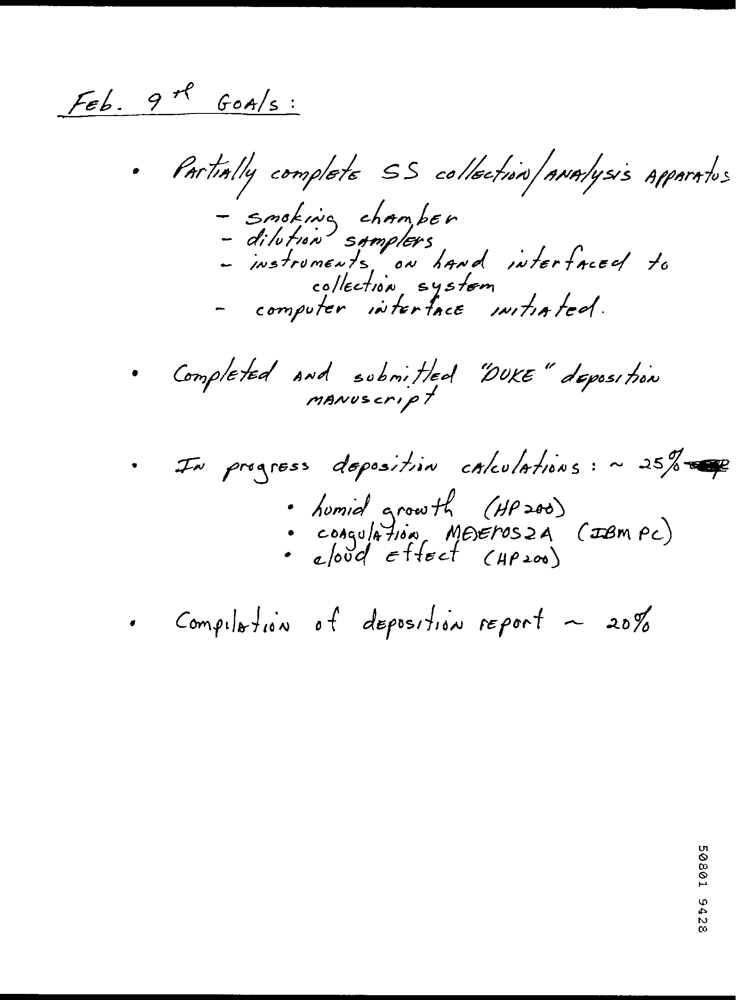 Feb. 9th Goals:
• Partially complete SS collection/analysis apparatus
- smoking chamber
- dilution samplers
- instruments on hand interfaced to
collection system
- computer interface initiated.
• Completed and submitted "DUKE" deposition
manuscript
• In progress deposition calculations: ~ 25%
• humid growth (HP200)
• coagulation (IBM PC)
• cloud effect (HP200)
• Compilation of deposition report ~ 20%
50801 9428